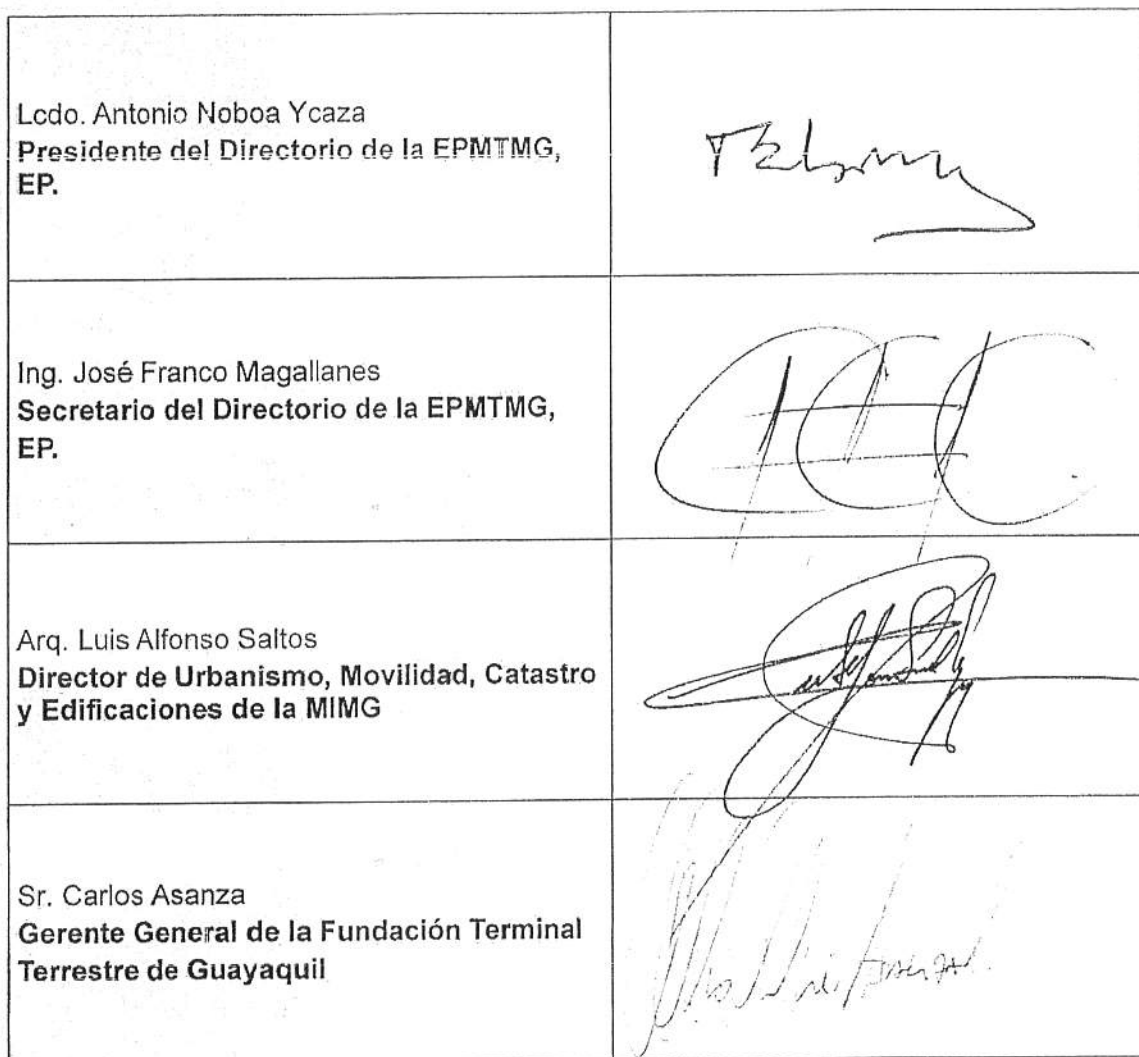 Lcdo. Antonio Noboa Ycaza
Presidente del Directorio de la EPMTMG,
EP.
Ing. José Franco Magallanes
Secretario del Directorio de la EPMTMG,
EP.
Arq. Luis Alfonso Saltos
Director de Urbanismo, Movilidad, Catastro
y Edificaciones de la MIMG
Sr. Carlos Asanza
Gerente General de la Fundación Terminal
Terrestre de Guayaquil